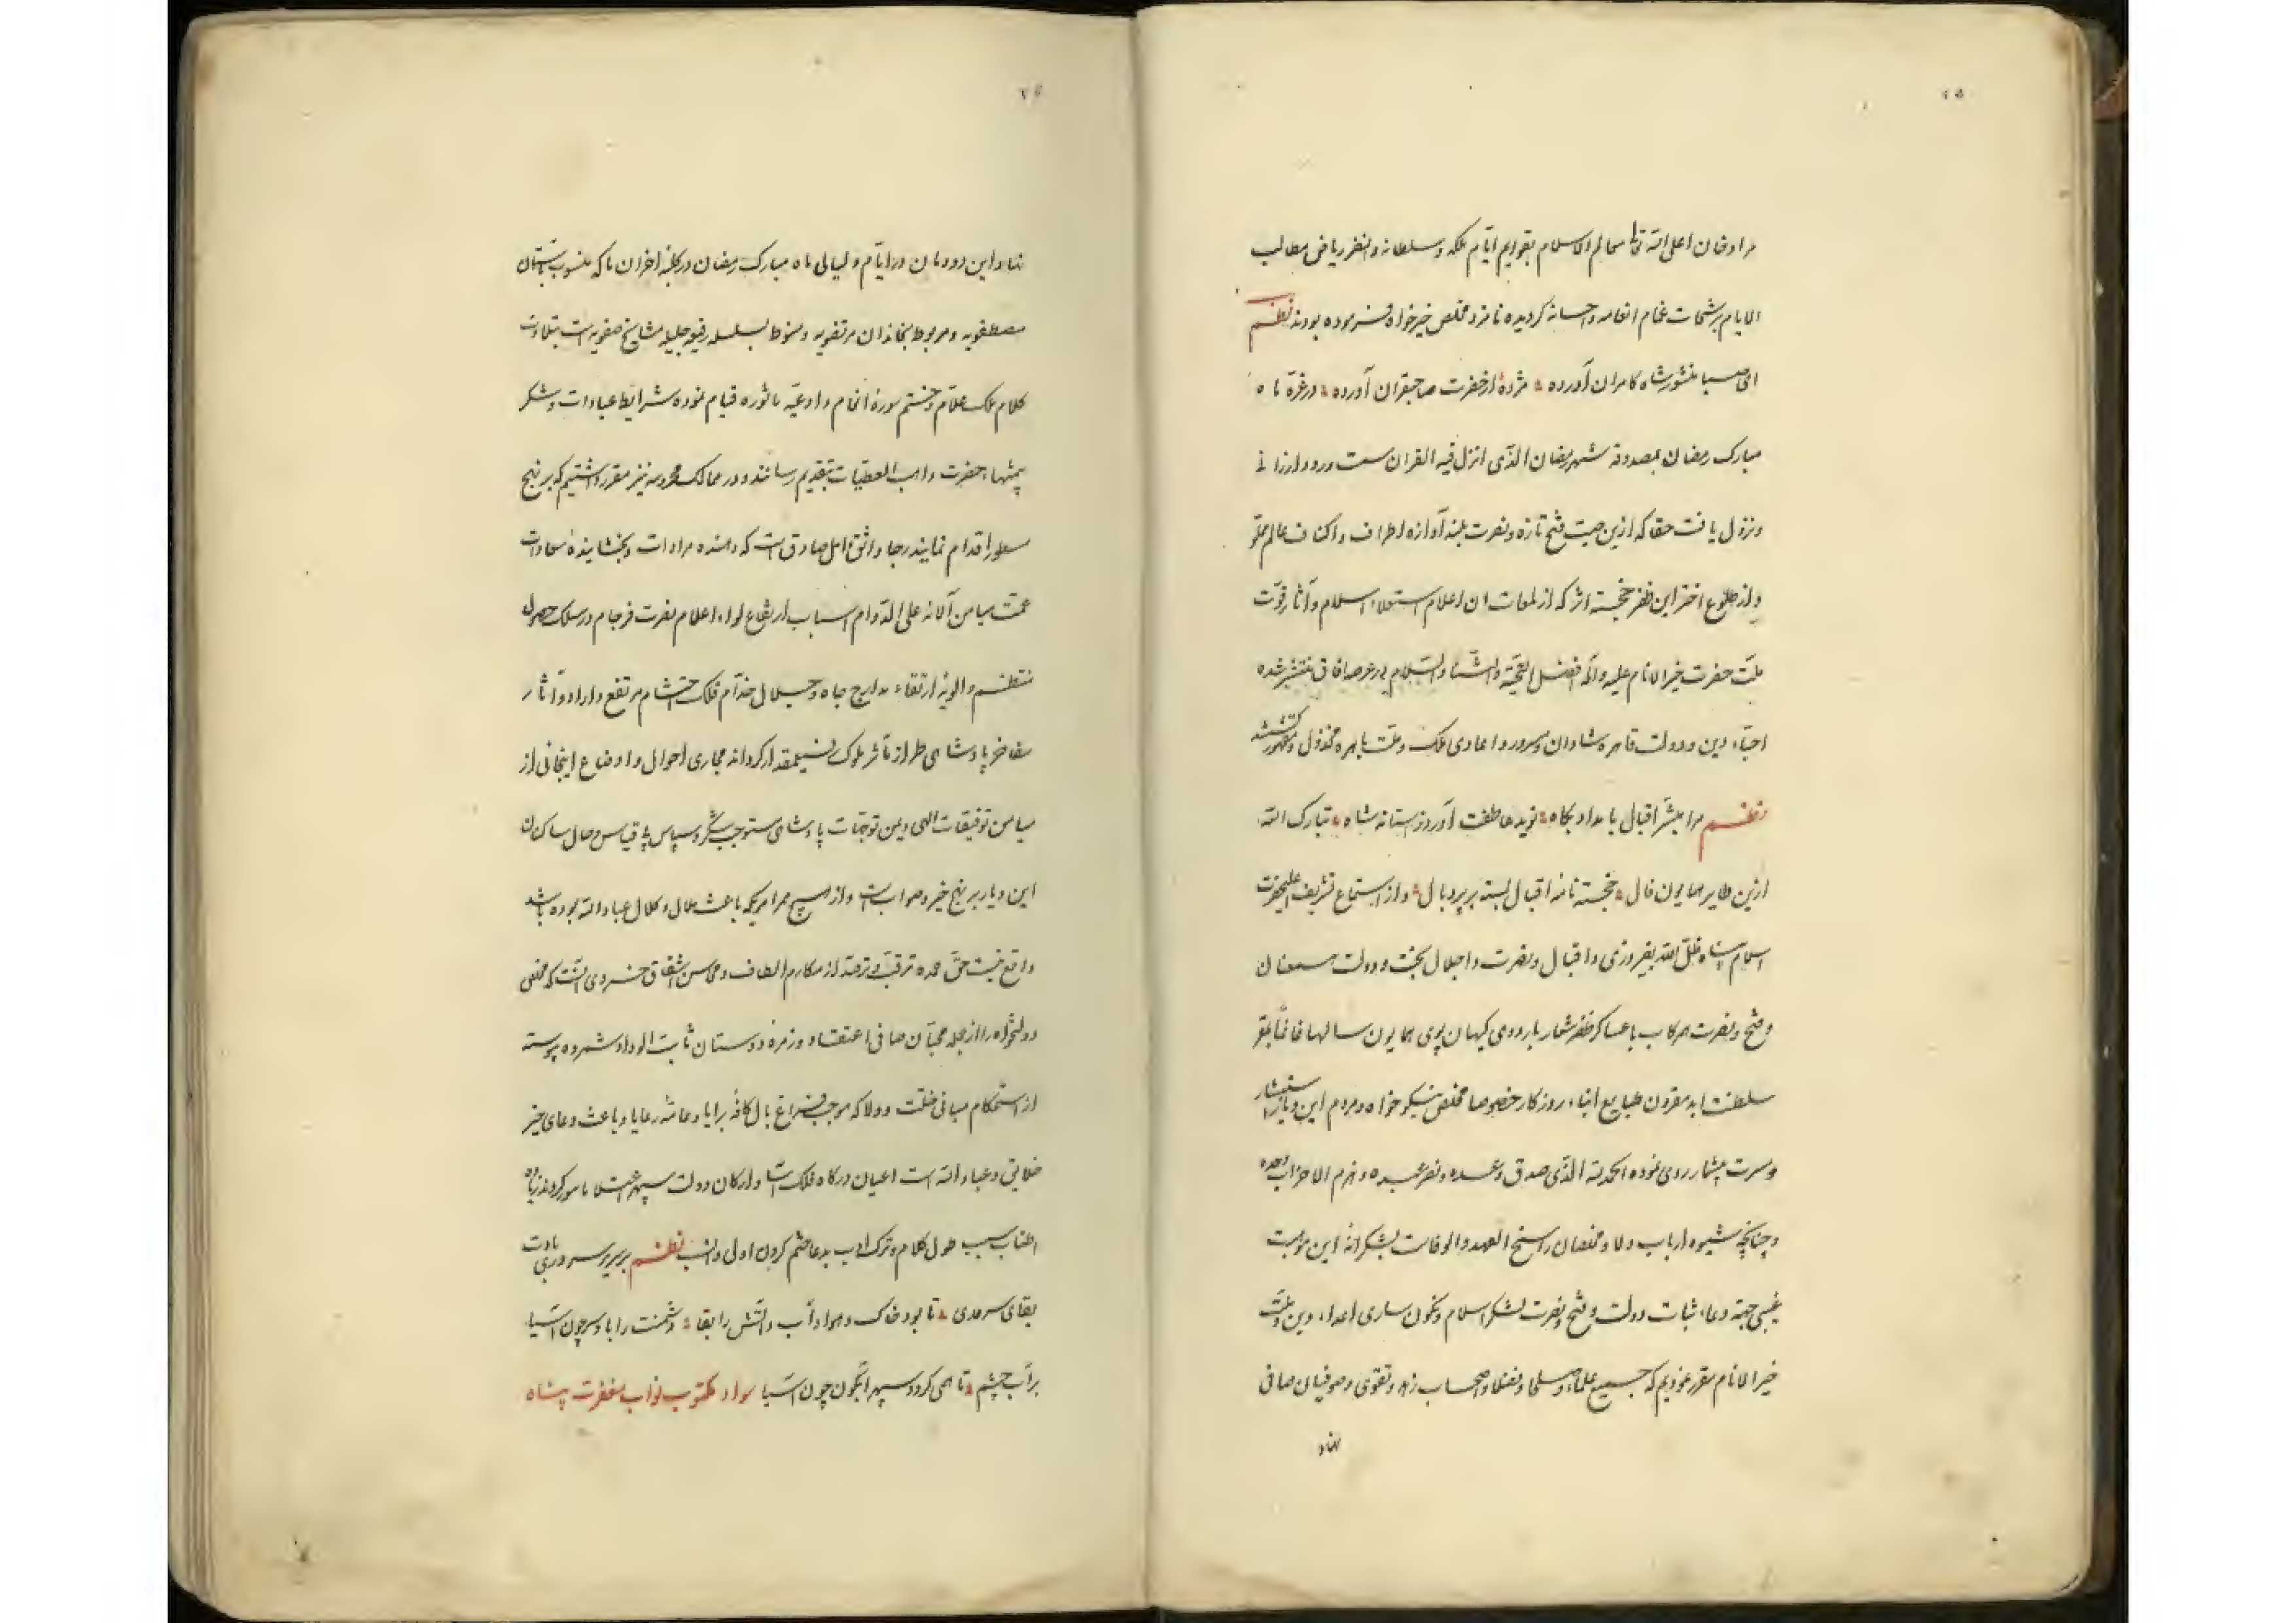 مراد خان اعلی الله تعالی معالم الاسلام بقوایم ایام ملکه و سلطانه و انضر ریاض مطالب
الایام برشحات غمام انعامه و احسانه کردیده نامزد مخلص خیرخواه فرموده بودند نظم
ای صبا منشور شاه کامران آورده مژدهٔ از حضرت صاحبقران آورده در غرهٔ ماه
مبارک رمضان بمصدوقه شهر رمضان الذی انزل فیه القران سمت ورود ارزانی
و نزول یافت حقا که ازین صیت فتح تازه و نصرت بلند آوازه اطراف و اکناف عالم مملو
و از طلوع اختر این ظفر خجسته اثر که از لمعات ان اعلام استعلاء اسلام و آثار قوت
ملت حضرت خیر الانام علیه و اله افضل التحیة و الثناء و السلام در عرصه افاق منتشر شده
احباء دین و دولت قاهره شادان و مسرور و اعادی ملک و ملت باهره مخذول و مقهور کشتند
نظم مرا مبشر اقبال بامداد پکاه نوید عاطفت آورد ز استانه شاه تبارک الله
ازین طایر همایون فال خجسته نامه اقبال بسته بر پر و بال و از استماع تشریف اعلیحضرت
اسلام پناه ظل الله بفیروزی و اقبال و نصرت و اجلال بخت و دولت همعنان
و فتح و نصرت همرکاب با عساکر ظفر شعار باردوی کیهان پوی همایون سالما غانما بمقر
سلطنت ابد مقرون طبایع ابناء روزکار خصوصا مخلص نیکو خواه و مردم این دیار را استبشار
و مسرت بیشمار روی نموده الحمد لله الذی صدق وعده و نصر عبده و هزم الاحزاب وحده
و چنانچه شیوه ارباب ولا و مخلصان راسخ العهد و الوفاست بشکرانه این موهبت
غیبی جهة دعاء ثبات دولت و فتح و نصرت لشکر اسلام و نکون ساری اعداء دین و ملت
خیر الانام مقرر نمودیم که جمیع علماء و صلحا و فضلا و اصحاب زهد و تقوی و صوفیان صافی
نهاد
نهاد این دودمان در ایام و لیالی ماه مبارک رمضان در کلبه احزان ما که منسوب بآستان
مصطفویه و مربوط بخاندان مرتضویه و منوط بسلسله رفیعه جلیله مشایخ صفویه است بتلاوت
کلام ملک علام و ختم سوره انعام و ادعیه ماثوره قیام نموده شرایط عبادات و شکر
بیمنتهاء حضرت واهب العطیات بتقدیم رسانند و در ممالک محروسه نیز مقرر داشتیم که بر نهج
مسطور اقدام نمایند رجا واثق و امل صادق است که دهنده مرادات و بخشایندهٔ سعادات
عمت میامن آلائه علی الدوام اسباب ارتفاع لواء اعلام نصرت فرجام در سلک حصول
منتظم و الویه ارتقاء مدارج جاه و جلال خدام فلک احتشام مرتفع داراد و آثار
مفاخر پادشاهی طراز مآثر ملوک کردانه مجاری احوال و اوضاع اینجانی از
میامن توفیقات الهی و یمن توجهات پادشاهی مستوجب شکر و سپاس بی قیاس و حال ساکنان
این دیار بر نهج خیر و صوابست و از هیچ ممر امریکه باعث ملال و کلال عباد الله بوده باشد
واقع نیست حق عمده ترقب و ترصد از مکارم الطاف و محاسن اشفاق خسروی آنست که مخلص
دولتخواه را از جمله محبان صافی اعتقاد و زمره دوستان ثابت الوداد شمرده پیوسته
از استحکام مبانی خلت و ولا که موجب فراغ بال کافه برایا و عامه رعایا و باعث دعای خیر
خلایق و عباد الله است اعیان درکاه فلک آسا و ارکان دولت سپهر اعتلا مامور کردند زیاده
اطناب سبب طول کلام و ترک ادب بدعا ختم کردن اولی و انسب نظم بر سریر سروری بادت
بقای سرمدی تا بود خاک و هوا و آب و آتش را بقا دشمنت را باد سر چون آسیا
بر آب چشم تا همی کردد سپهر آبکون چون آسیا سواد مکتوب نواب مغفرت پناه